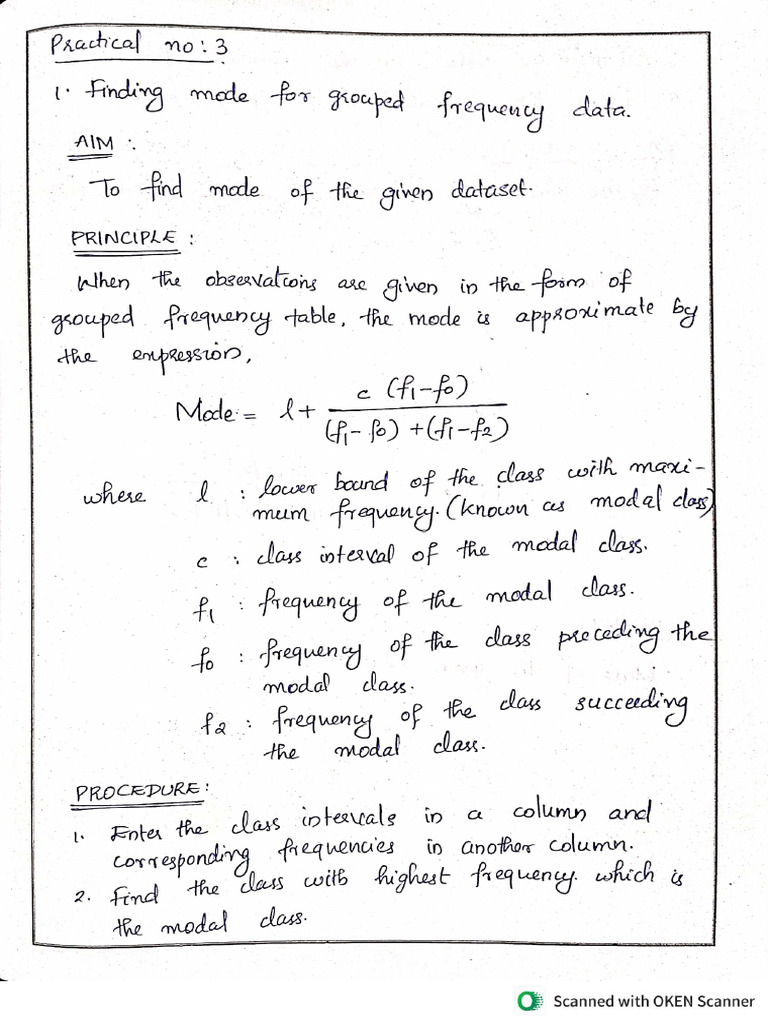 Practical no: 3
1. Finding mode for grouped frequency data.
AIM :
To find mode of the given dataset.
PRINCIPLE :
When the observations are given in the form of
grouped frequency table, the mode is approximate by
the expression,
Mode = l + c (f1 - f0) / (f1 - f0) + (f1 - f2)
where l : lower bound of the class with maxi-
mum frequency. (known as modal class)
c : class interval of the modal class.
f1 : frequency of the modal class.
f0 : frequency of the class preceding the
modal class.
f2 : frequency of the class succeeding
the modal class.
PROCEDURE :
1. Enter the class intervals in a column and
corresponding frequencies in another column.
2. Find the class with highest frequency. which is
the modal class.
Scanned with OKEN Scanner